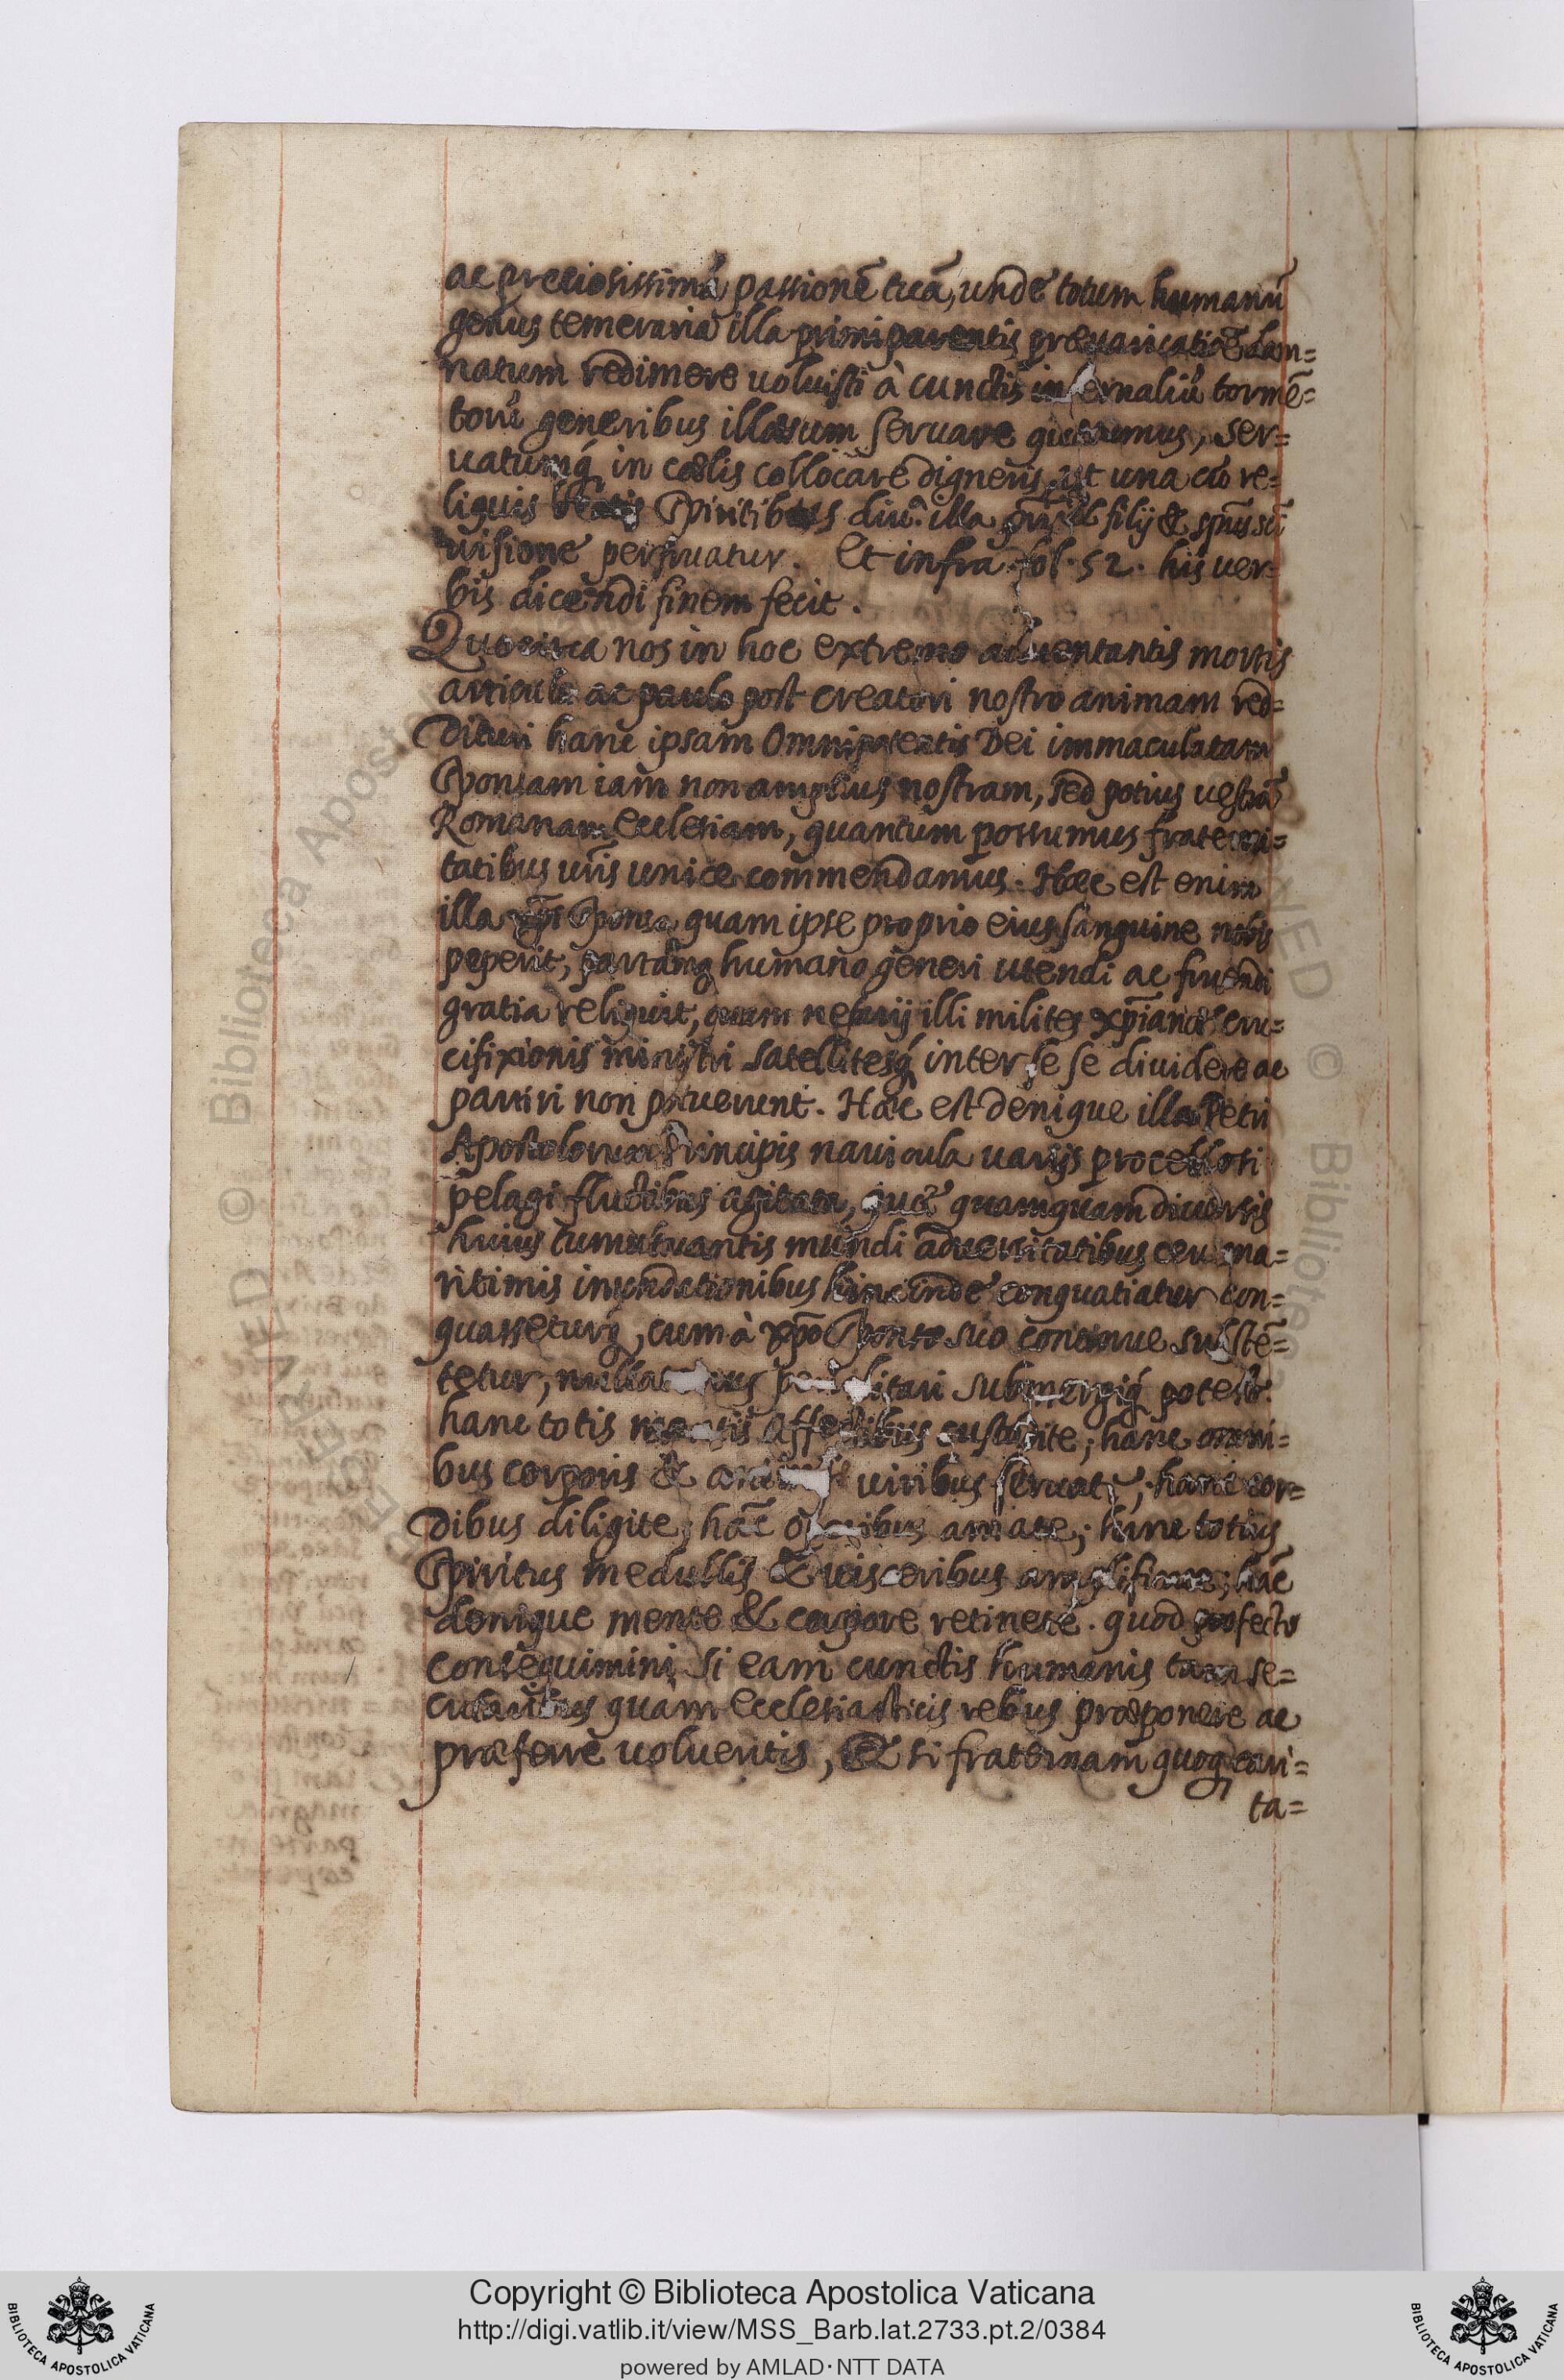 ac preciosissimā passionē tuā, unde totum humanū
genus temeraria illa primi parentis præuaricatiōe dam=
natum redimere uoluisti à cunctis infernaliū tormē=
torū generibus illæsum seruare quæsumus, ser=
uatumq́ in cœlis collocare digneris, ut una cū re=
liquis beatis Spiritibus diu. illa filij & spūs sā
uisione perfruatur. Et infra fol. 52. his uer=
bis dicendi finem fecit.
Quocirca nos in hoc extremo aduentantis mortis
articulo ac paulo post creatori nostro animam red=
dituri hanc ipsam Omnipotentis Dei immaculatam
Sponsam iam non amplius nostram, sed potius uestrā
Romanam Ecclesiam, quantum possumus fraterni=
tatibus uris unice commendamus. Hæc est enim
illa xpi Sponsa quam ipse proprio eius sanguine nobis
peperit, partāmq humano generi utendi ac fruendi
gratia reliquit, quam nefarij illi milites xpianæ cru=
cifixionis ministri satellitesq́ inter se se diuidere ac
partiri non potuerunt. Hæc est denique illa Petri
Apostolorum Principis nauicula uarijs procellosi
pelagi fluctibus agitata, quæ quamquam diuersis
huius tumultuantis mundi aduersitatibus ceu ma=
ritimis inundationibus hinc inde conquatiatur con=
quasseturq́, cum à xpo Sponso suo continue sustē=
tetur, nullatenus periclitari submergiq́ potest.
hanc totis mentis affectibus custodite; hanc omni=
bus corporis & animi uiribus seruate; hanc cor=
dibus diligite; hāc operibus amate; hanc totius
Spiritus medullis & uisceribus amplificate; hāc
denique mente & corpore retinete. quod profecto
consequimini si eam cunctis humanis tam se=
cularibus quam Ecclesiasticis rebus præponere ac
præferre uolueritis, & si fraternam quoq cari=
ta=
Copyright © Biblioteca Apostolica Vaticana
http://digi.vatlib.it/view/MSS_Barb.lat.2733.pt.2/0384
powered by AMLAD·NTT DATA
BIBLIOTECA APOSTOLICA VATICANA
BIBLIOTECA APOSTOLICA VATICANA